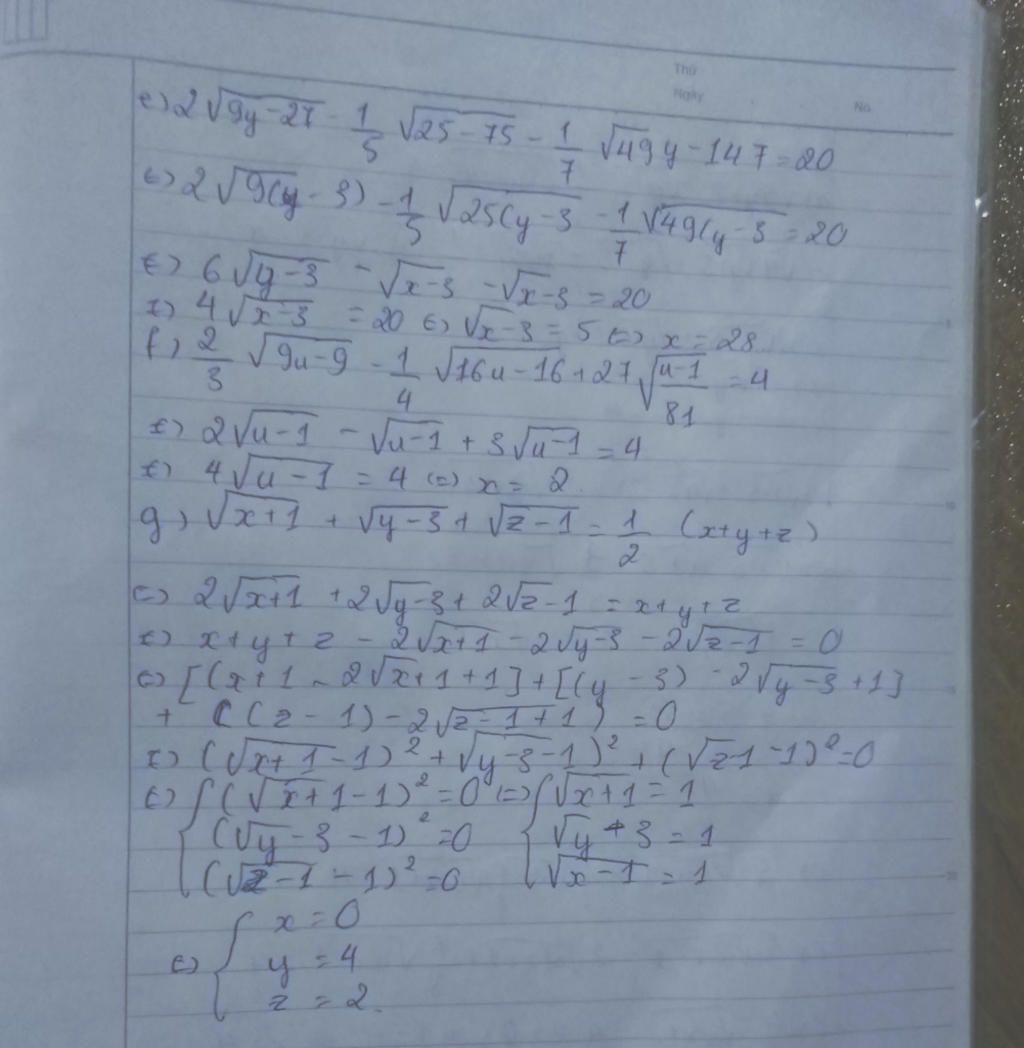 Thứ
Ngày No.
e) 2√9y-27 - 1/5 √25-75 - 1/7 √49y-147 = 20
(=) 2√9(y-3) - 1/5 √25(y-3 - 1/7 √49(y-3 = 20
(=) 6√y-3 - √x-3 - √x-3 = 20
(=) 4√x-3 = 20 (=) √x-3 = 5 (=) x = 28
f) 2/3 √9u-9 - 1/4 √16u-16 + 27 √u-1/81 = 4
(=) 2√u-1 - √u-1 + 3√u-1 = 4
(=) 4√u-1 = 4 (=) x = 2
g) √x+1 + √y-3 + √z-1 = 1/2 (x+y+z)
(=) 2√x+1 + 2√y-3 + 2√z-1 = x+y+z
(=) x+y+z - 2√x+1 - 2√y-3 - 2√z-1 = 0
(=) [(x+1 - 2√x+1+1] + [(y-3) - 2√y-3+1]
+ ((z-1) - 2√z-1+1) = 0
(=) (√x+1-1)² + √y-3-1)² + (√z-1-1)² = 0
(=) { (√x+1-1)² = 0 (=) { √x+1 = 1
(√y-3-1)² = 0 √y+3 = 1
(√z-1-1)² = 0 √x-1 = 1
(=) { x = 0
y = 4
z = 2.